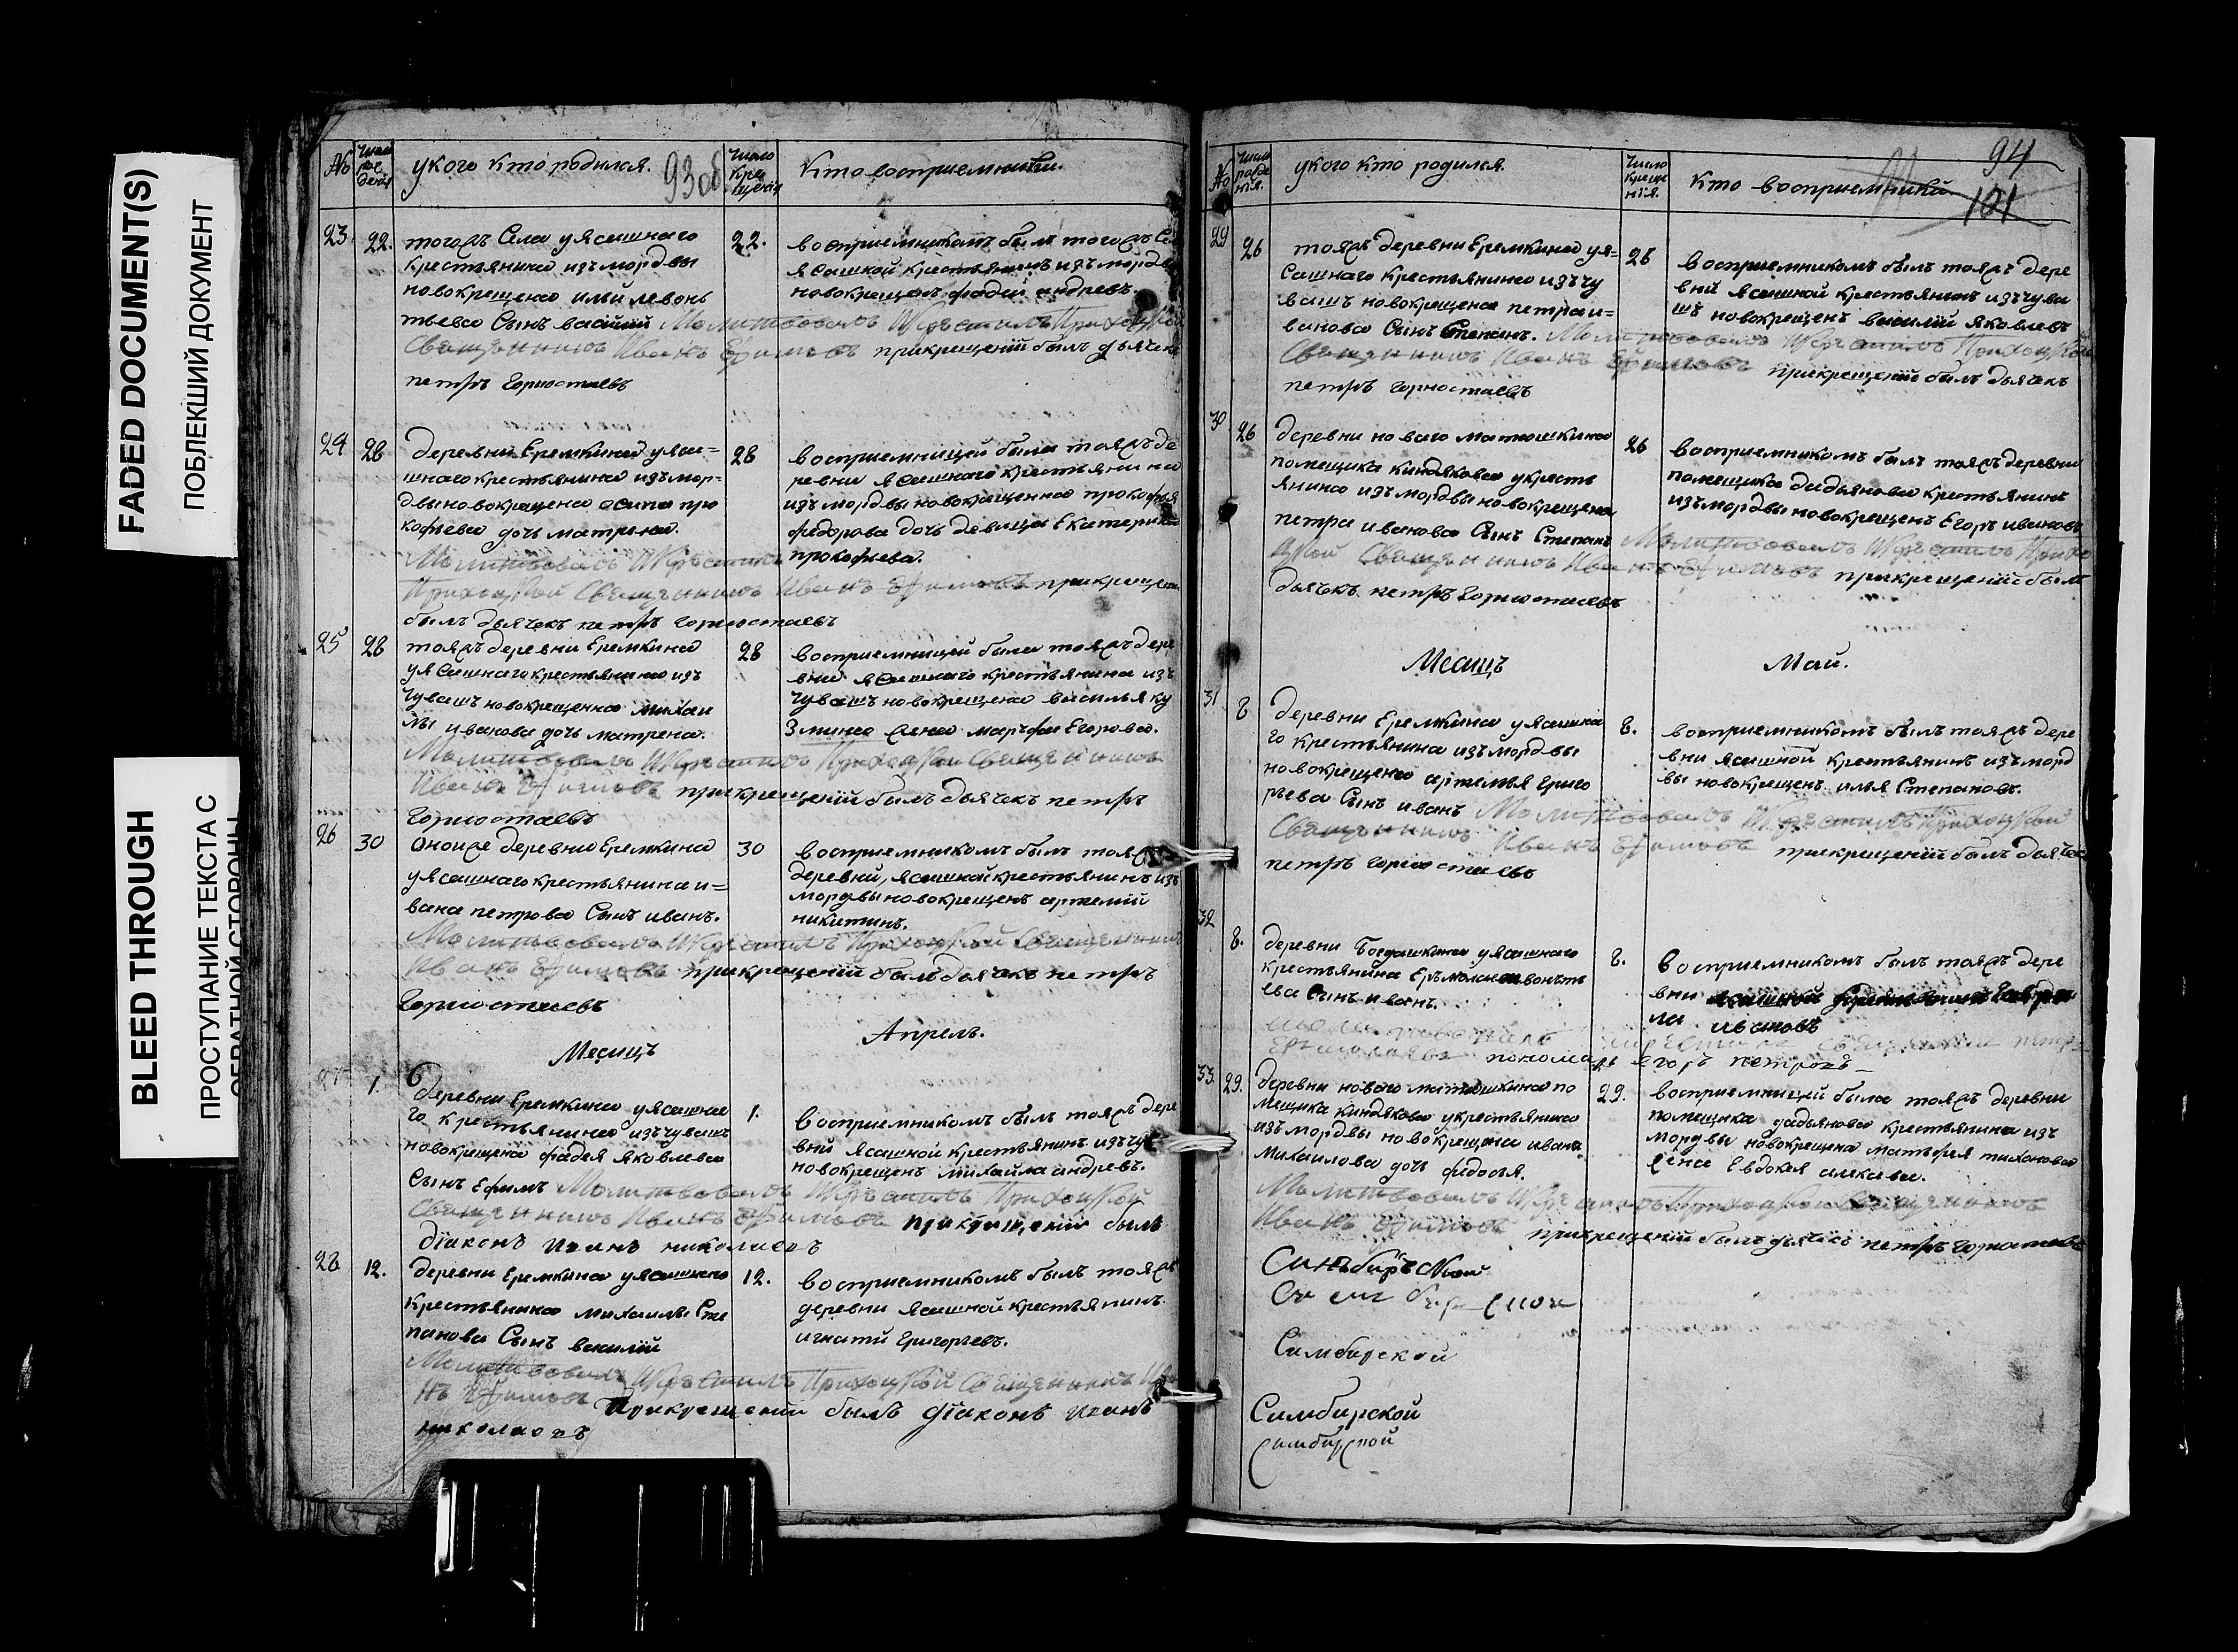 FADED DOCUMENT(S)
ПОБЛЕКШИЙ ДОКУМЕНТ
BLEED THROUGH
ПРОСТУПАНИЕ ТЕКСТА С
ОБРАТНОЙ СТОРОНЫ
№
укого кто родился.
93об
число крещения
Кто восприемники.
23
22.
тогожъ Села уясашнаго
крестьянина изъмордвы
новокрещена ильи левонь
тьева Сынъ василий Молитвовалъ Икрестилъ Приходской
Священникъ Иванъ Ефимовъ прикрещении былъ дьячекъ
петръ Горностаевъ
22.
восприемникомъ былъ тогожъ Се
ясашной крестьянинъ изъ мордв
новокрещенъ фадей андревъ.
24
28
деревни Еремкина уяса=
шнаго крестьянина изъмор=
двы новокрещена осипа про
кофьева дочь матрена.
Молитвовалъ Икрестилъ
Приходской Священникъ Иванъ Ефимовъ прикрещени
былъ дьячекъ петръ Горностаевъ
28
восприемницей была тояжъ де
ревни ясашнаго крестьянина
изъ мордвы новокрещенна прокофья
федорова дочь девица Екатерина
прокофьева.
25
28
тояжъ деревни Еремкина
уясашнаго крестьянина изъ
Чувашъ новокрещенна михаи
лы иванова дочь матрена.
Молитвовалъ Икрестилъ Приходской Священникъ
Иванъ Ефимовъ прикрещении былъ дьячекъ петръ
Горностаевъ
28
восприемницей была тояжъ дере
вни ясашнаго крестьянина изъ
Чувашъ новокрещена василья ку
змина жена марфа Егорова.
26
30
оноиже деревни Еремкина
уясашнаго крестьянина и=
вана петрова Сынъ иванъ.
Молитвовалъ Икрестилъ Приходской Священникъ
Иванъ Ефимовъ прикрещении былъ дьячекъ петръ
Горностаевъ
30
восприемникомъ былъ тояжъ
деревни, ясашной крестьянинъ изъ
мордвы новокрещенъ артемий
никитинъ.
Месяцъ
Апрель.
1.
деревни Еремкина уясашна
го крестьянина изъчувашъ
новокрещена фадея яковлева
Сынъ Ефимъ Молитвовалъ Икрестилъ Приходской
Священникъ Иванъ Ефимовъ прикрещении былъ
диаконъ Иванъ николаевъ
1.
восприемникомъ былъ тояжъ дере
вни ясашной крестьянинъ изъчу
новокрещенъ михайла андревъ.
28
12.
деревни Еремкина уясашнаго
крестьянина михаилы Сте
панова Сынъ василий
Молитвовалъ Икрестилъ Приходской Священникъ Ива
нъ Ефимовъ Прикрещении былъ диаконъ Иванъ
николаевъ
12.
восприемникомъ былъ тояжъ
деревни ясашной крестьянинъ
игнатий григорьевъ.
№
укого кто родился.
Число крещения.
Кто восприемники.
94
101
29
26
тояжъ деревни Еремкина уя=
Сашнаго крестьянина изъчу
вашъ новокрещена петра и=
ванова Сынъ Степанъ. Молитвовалъ Икрестилъ Приходской
Священникъ Иванъ Ефимовъ прикрещении былъ дьячекъ
петръ Горностаевъ
26
восприемникомъ былъ тояжъ дере
вни ясашной крестьянинъ изъчува
шъ новокрещенъ василий яковлевъ
30
26
деревни новаго матюшкина
помещика киндякова укресть
янина изъ мордвы новокрещена
петра иванова Сынъ Степанъ Молитвовалъ Икрестилъ Прихо
дской Священникъ Иванъ Ефимовъ прикрещении былъ
дьячекъ петръ Горностаевъ
26
восприемникомъ былъ тояжъ деревни
помещика дадьянова крестьянинъ
изъмордвы новокрещенъ Егоръ ивановъ
Месяцъ
Май.
31
8
деревни Еремкина уясашна
го крестьянина изъмордвы
новокрещена артемья григо
рьева Сынъ иванъ Молитвовалъ Икрестилъ Приходской
Священникъ Иванъ Ефимовъ прикрещении былъ дьячек
петръ Горностаевъ
8.
восприемникомъ былъ тояжъ дере
вни ясашной крестьянинъ изъморд
вы новокрещенъ илья Степановъ.
32
8.
деревни Богдашкина уясашнаго
крестьянина Ермолаи
ева Сынъ иванъ.
пономарь егоръ петровъ
8.
восприемникомъ былъ тояжъ дере
вни
ла ивановъ
33.
29.
деревни новаго матюшкина по
мещика киндякова укрестьянина
изъмордвы новокрещена ивана
михаилова дочь федосья.
Молитвовалъ Икрестилъ Приходской Священникъ
Иванъ Ефимовъ прикрещении былъ дьячекъ петръ Горностаевъ
29.
восприемницей была тояжъ деревни
помещика дадьянова крестьянина изъ
мордвы новокрещена матфея тихонова
жена Евдокея
Синъбирской
Симбирской
Симбирской
симбирской